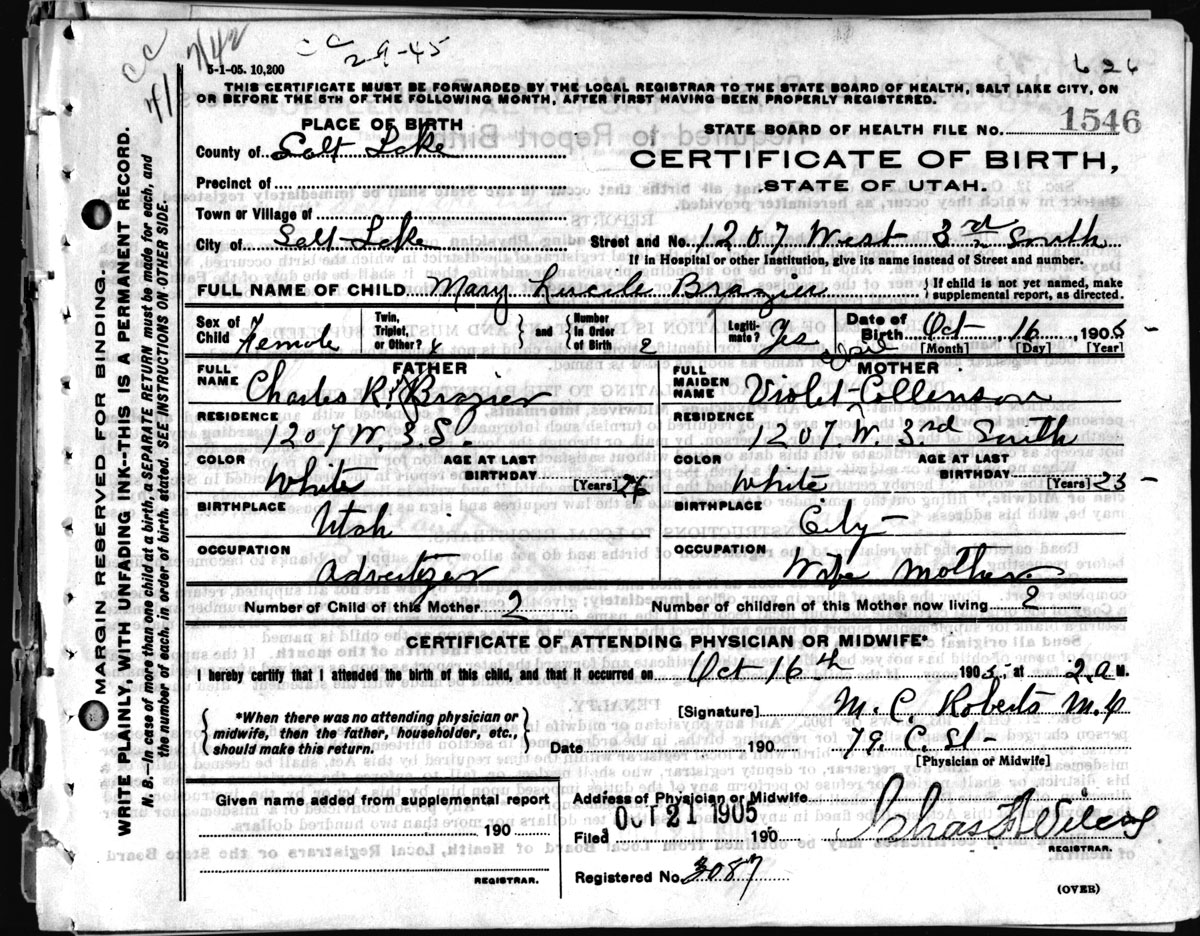 CC 7/42
CC
2-9-45
41
5-1-05. 10,200
626
THIS CERTIFICATE MUST BE FORWARDED BY THE LOCAL REGISTRAR TO THE STATE BOARD OF HEALTH, SALT LAKE CITY, ON
OR BEFORE THE 5TH OF THE FOLLOWING MONTH, AFTER FIRST HAVING BEEN PROPERLY REGISTERED.
PLACE OF BIRTH
STATE BOARD OF HEALTH FILE No. 1546
County of Salt Lake
CERTIFICATE OF BIRTH,
Precinct of
STATE OF UTAH.
Town or Village of
City of Salt Lake Street and No. 1207 West 3rd South
If in Hospital or other Institution, give its name instead of Street and number.
FULL NAME OF CHILD Mary Lucile Brazier { If child is not yet named, make supplemental report, as directed.
Sex of Child Female Twin, Triplet, or Other? } and { Number in Order of Birth 2 Legiti- mate? Yes Date of Birth Oct 16, 1905
[Month] [Day] [Year]
FATHER
MOTHER
FULL NAME Charles R. Brazier
FULL MAIDEN NAME Violet Collenson
RESIDENCE 1207 W. 3. S.
RESIDENCE 1207 W. 3rd South
COLOR White AGE AT LAST BIRTHDAY 26 [Years]
COLOR White AGE AT LAST BIRTHDAY 23 [Years]
BIRTHPLACE Utah
BIRTHPLACE City
OCCUPATION Advertizer
OCCUPATION Wife Mother
Number of Child of this Mother 2 Number of children of this Mother now living 2
CERTIFICATE OF ATTENDING PHYSICIAN OR MIDWIFE*
I hereby certify that I attended the birth of this child, and that it occurred on Oct 16th 1905, at 2 a M.
{ *When there was no attending physician or midwife, then the father, householder, etc., should make this return. }
[Signature] M. C. Roberts M.D.
Date 190 79. C. St-
[Physician or Midwife]
Given name added from supplemental report
190
REGISTRAR.
Address of Physician or Midwife
Filed OCT 21 1905 190
REGISTRAR.
Registered No. 3087
(OVER)
MARGIN RESERVED FOR BINDING.
WRITE PLAINLY, WITH UNFADING INK--THIS IS A PERMANENT RECORD.
N. B.—In case of more than one child at a birth, a SEPARATE RETURN must be made for each, and
the number of each, in order of birth, stated. SEE INSTRUCTIONS ON OTHER SIDE.